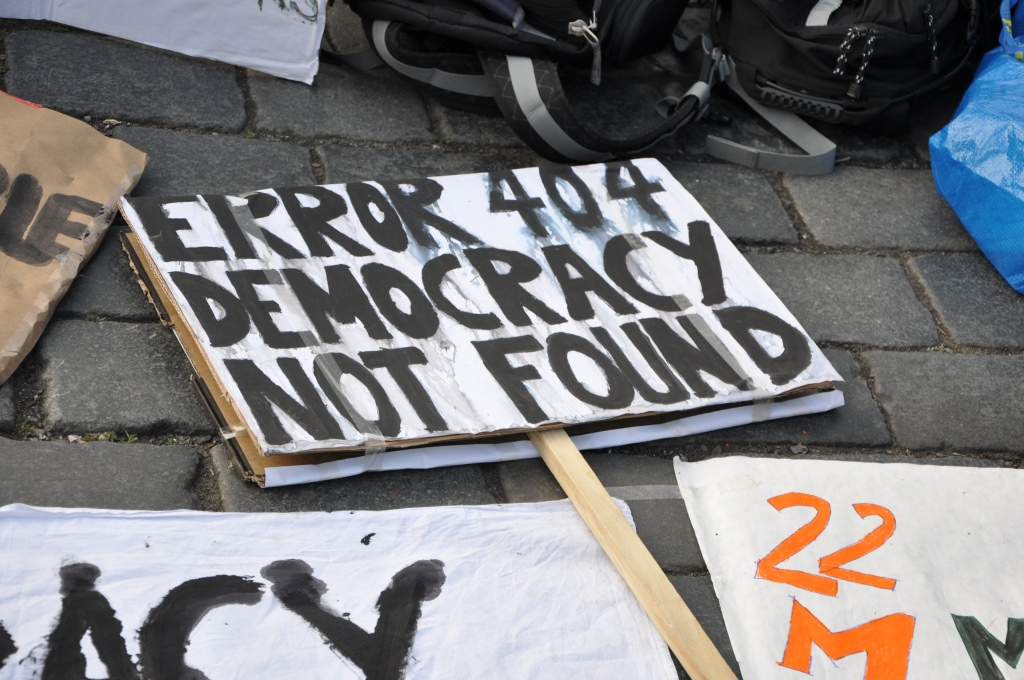 ERROR 404
DEMOCRACY
NOT FOUND
UE
ACY
22
M